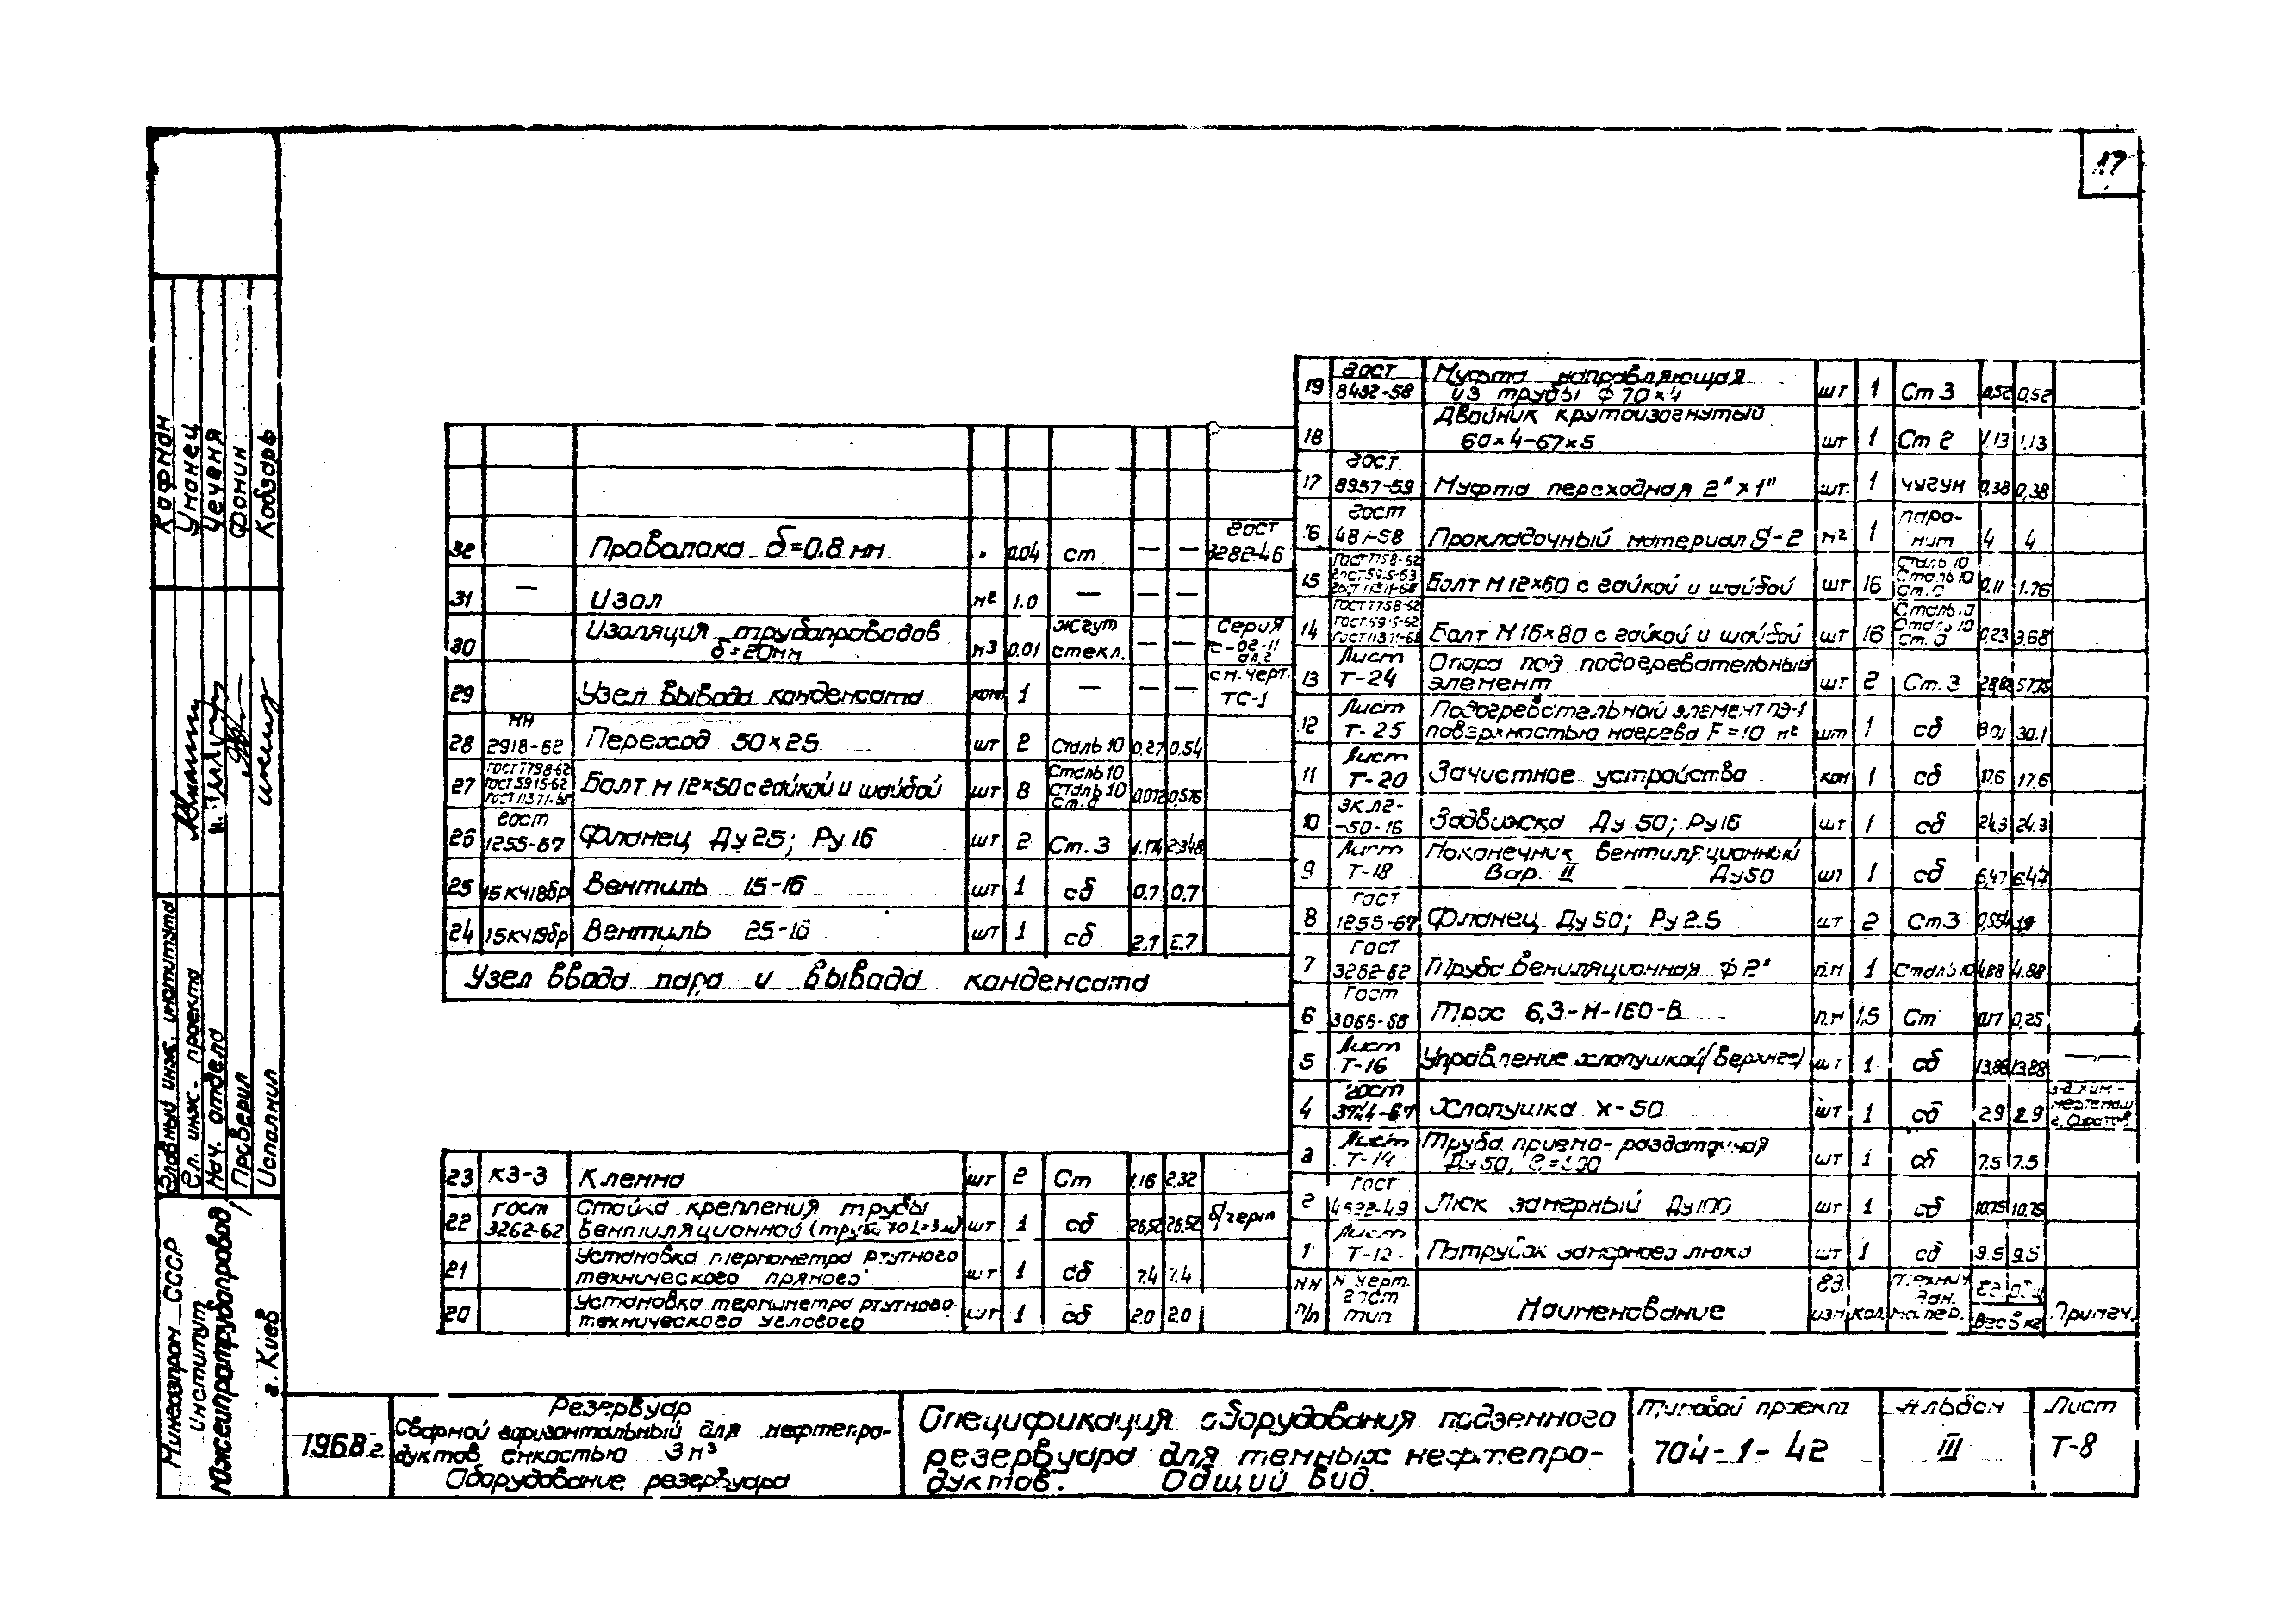 17
19 гост 8492-58 Муфта направляющая из трубы ф 70×4 шт 1 Ст 3 0,52 0,52
18 Двойник крутоизогнутый 60×4-67×5 шт 1 Ст 2 1.13 1.13
17 гост 8957-59 Муфта переходная 2"×1" шт. 1 чугун 0,38 0,38
16 гост 481-58 Прокладочный материал S-2 м² 1 паро-нит 4 4
15 Гост 7758-62 гост 5915-63 гост 11371-68 Болт М 12×60 с гайкой и шайбой шт 16 Сталь 10 Сталь 10 Ст.0 0,11 1.76
14 Гост 7758-62 Гост 5915-62 Гост 11371-68 Болт М 16×80 с гайкой и шайбой шт 16 Сталь 10 Ст. 0 0,23 3.68
13 Лист Т-24 Опора под подогревательный элемент шт 2 Ст. 3 57.75
12 Лист Т-25 Подогревательный элемент ПЭ-1 поверхностью нагрева F=10 м² шт 1 сб 30.1
11 Лист Т-20 Зачистное устройство ком 1 сб 17.6 17.6
10 зкл2-50-16 Задвижка Ду 50; Ру16 шт 1 сб 24.3 24.3
9 Лист Т-18 Наконечник вентиляционный Вар. II Ду50 шт 1 сб 6,47 6.47
8 гост 1255-67 Фланец Ду 50; Ру 2.5 шт 2 Ст3
7 гост 3262-62 Труба вениляционная ф 2" п.м 1 Сталь 10 4.88 4.88
6 гост 3066-66 Трос 6,3-Н-160-В п.м 1,5 Ст 0,17 0,25
5 Лист Т-16 Управление хлопушкой (верхнее) шт 1 сб 13.88 13.88 —
4 гост 3744-67 Хлопушка Х-50 шт 1 сб 2.9 2.9 г. Саратов
3 Лист Т-14 Труба приемо-раздаточная Ду 50, шт 1 сб 7.5 7.5
2 гост 4632-49 Люк замерный Ду100 шт 1 сб 10.75 10.75
1 Лист Т-12 Патрубок замерного люка шт 1 сб 9.5 9.5
NN п/п N черт. гост тип Наименование ед. изм. кол. технич. дан. матер. Вес в кг Примеч.
32 Проволока δ=0.8 мм " 0.04 ст — — гост 3282-46
31 — Изол м² 1.0 — — —
30 Изоляция трубопроводов δ=20мм м3 0.01 жгут стекл. — — Серия
29 Узел вывода конденсата комп 1 — — — см. черт. ТС-1
28 мн 2918-62 Переход 50×25 шт 2 Сталь 10 0.27 0.54
27 гост 7798-62 гост 5915-62 гост 11371-68 Болт м 12×50 с гайкой и шайбой шт 8 Сталь 10 Сталь 10 Ст.0 0,072 0,576
26 гост 1255-67 Фланец Ду 25; Ру 16 шт 2 Ст. 3 1.174 2.348
25 15кч18бр Вентиль 15-16 шт 1 сб 0.7 0.7
24 15кч19бр Вентиль 25-16 шт 1 сб 2.7 2.7
Узел ввода пара и вывода конденсата
23 КЗ-3 Клемма шт 2 Ст 1.16 2.32
22 гост 3262-62 Стойка крепления трубы вентиляционной (труба 70 L=3м) шт 1 сб 26,52 26.52 б/черт
21 Установка термометра ртутного технического прямого шт 1 сб 7.4 7.4
20 Установка термометра ртутново технического углового шт 1 сб 2.0 2.0
Кофман
Уманец
Чеченя
Фомин
Кобзарь
Главный инж. института
Гл. инж. проекта
Нач. отдела
Проверил
Исполнил
Мингазпром СССР
Институт
Южгипротрубопровод
г. Киев
1968г.
Резервуар
Сварной горизонтальный для нефтепро-
дуктов емкостью 3 м³
Оборудование резервуара
Спецификация оборудования подземного
резервуара для темных нефтепро-
дуктов. Общий вид.
Типовой проект
704-1-42
Альбом
III
Лист
Т-8